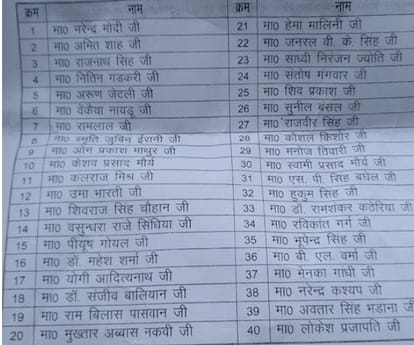 क्रम नाम
1 मा0 नरेन्द्र मोदी जी
2 मा0 अमित शाह जी
3 मा0 राजनाथ सिंह जी
4 मा0 नितिन गडकरी जी
5 मा0 अरूण जेटली जी
6 मा0 वेंकैया नायडू जी
7 मा0 रामलाल जी
8 मा0 स्मृति जुबिन ईरानी जी
9 मा0 ओम प्रकाश माथुर जी
10 मा0 केशव प्रसाद मौर्य
11 मा0 कलराज मिश्र जी
12 मा0 उमा भारती जी
13 मा0 शिवराज सिंह चौहान जी
14 मा0 वसुन्धरा राजे सिंधिया जी
15 मा0 पीयूष गोयल जी
16 मा0 डॉ. महेश शर्मा जी
17 मा0 योगी आदित्यनाथ जी
18 मा0 डॉ. संजीव बालियान जी
19 मा0 राम बिलास पासवान जी
20 मा0 मुख्तार अब्बास नकवी जी
क्रम नाम
21 मा0 हेमा मालिनी जी
22 मा0 जनरल वी. के. सिंह जी
23 मा0 साध्वी निरंजन ज्योति जी
24 मा0 संतोष गंगवार जी
25 मा0 शिव प्रकाश जी
26 मा0 सुनील बंसल जी
27 मा0 राजवीर सिंह जी
28 मा0 कौशल किशोर जी
29 मा0 मनोज तिवारी जी
30 मा0 स्वामी प्रसाद मौर्य जी
31 मा0 एस. पी. सिंह बघेल जी
32 मा0 हुकुम सिंह जी
33 मा0 डॉ. रामशंकर कठेरिया जी
34 मा0 रविकांत गर्ग जी
35 मा0 भूपेन्द्र सिंह जी
36 मा0 बी. एल. वर्मा जी
37 मा0 मेनका गांधी जी
38 मा0 नरेन्द्र कश्यप जी
39 मा0 अवतार सिंह भडाना जी
40 मा0 लोकेश प्रजापति जी